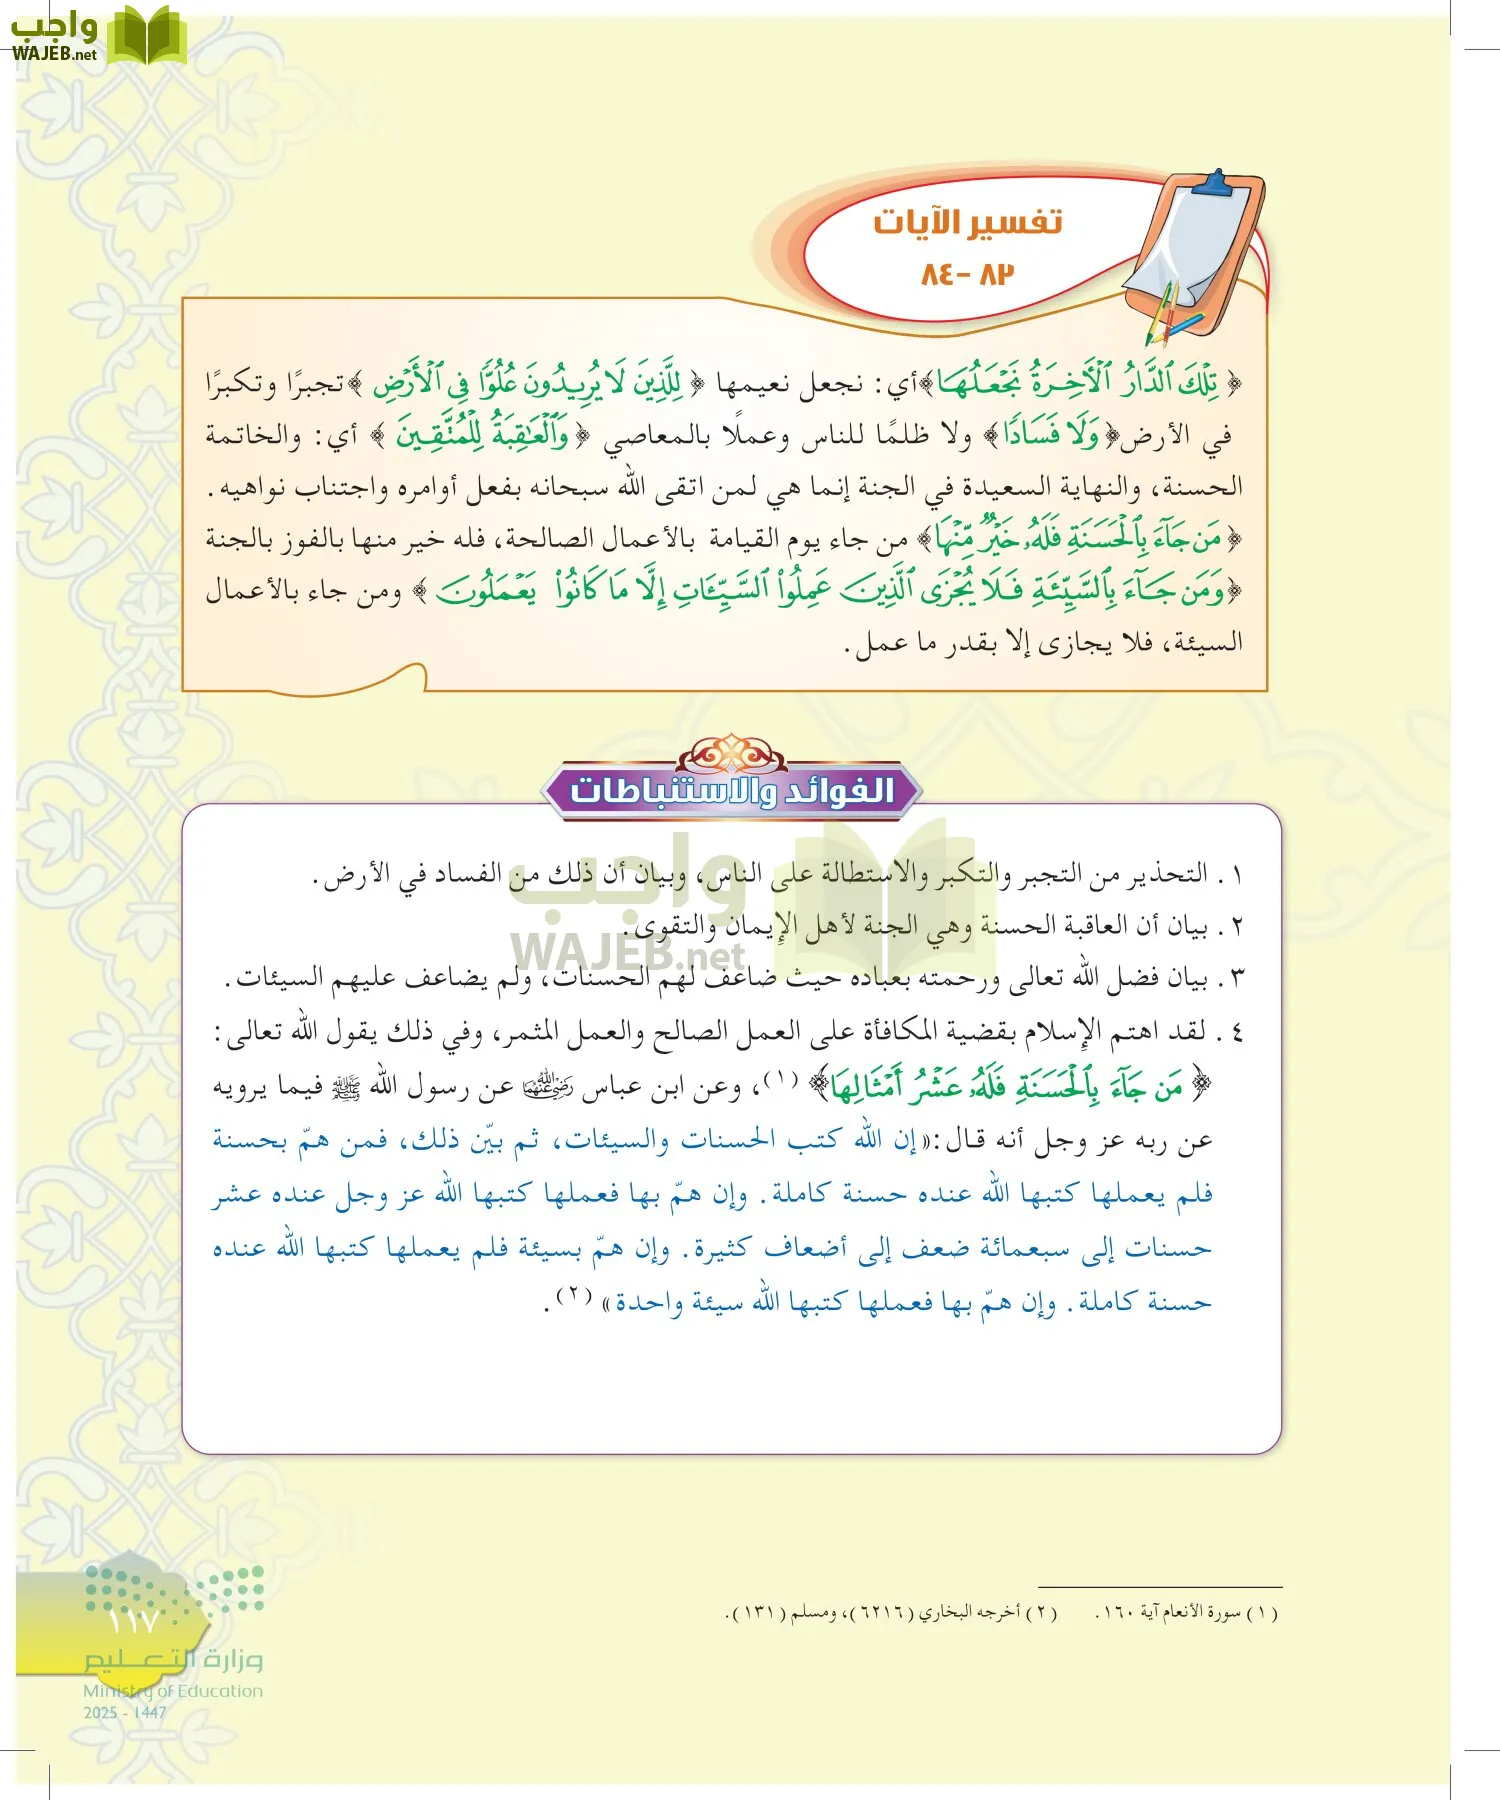 واجب
WAJEB.net
تفسير الآيات
٨٢ -٨٤
﴿ تِلْكَ ٱلدَّارُ ٱلْأَخِرَةُ نَجْعَلُهَا﴾أي: نجعل نعيمها ﴿ لِلَّذِينَ لَا يُرِيدُونَ عُلُوًّا فِى ٱلْأَرْضِ ﴾تجبرًا وتكبرًا
في الأرض﴿وَلَا فَسَادًا﴾ ولا ظلمًا للناس وعملًا بالمعاصي ﴿ وَٱلْعَٰقِبَةُ لِلْمُتَّقِينَ ﴾ أي: والخاتمة
الحسنة، والنهاية السعيدة في الجنة إنما هي لمن اتقى الله سبحانه بفعل أوامره واجتناب نواهيه.
﴿ مَن جَآءَ بِٱلْحَسَنَةِ فَلَهُۥ خَيْرٌ مِّنْهَا﴾ من جاء يوم القيامة بالأعمال الصالحة، فله خير منها بالفوز بالجنة
﴿وَمَن جَآءَ بِٱلسَّيِّئَةِ فَلَا يُجْزَى ٱلَّذِينَ عَمِلُوا۟ ٱلسَّيِّـَٔاتِ إِلَّا مَا كَانُوا۟ يَعْمَلُونَ ﴾ ومن جاء بالأعمال
السيئة، فلا يجازى إلا بقدر ما عمل.
الفوائد والاستنباطات
١. التحذير من التجبر والتكبر والاستطالة على الناس، وبيان أن ذلك من الفساد في الأرض.
٢. بيان أن العاقبة الحسنة وهي الجنة لأهل الإيمان والتقوى.
واجب
WAJEB.net
٣. بيان فضل الله تعالى ورحمته بعباده حيث ضاعف لهم الحسنات، ولم يضاعف عليهم السيئات.
٤. لقد اهتم الإسلام بقضية المكافأة على العمل الصالح والعمل المثمر، وفي ذلك يقول الله تعالى:
﴿ مَن جَآءَ بِٱلْحَسَنَةِ فَلَهُۥ عَشْرُ أَمْثَالِهَا﴾ (١)، وعن ابن عباس رضي الله عنهما عن رسول الله ﷺ فيما يرويه
عن ربه عز وجل أنه قال:«إن الله كتب الحسنات والسيئات، ثم بيّن ذلك، فمن همّ بحسنة
فلم يعملها كتبها الله عنده حسنة كاملة. وإن همّ بها فعملها كتبها الله عز وجل عنده عشر
حسنات إلى سبعمائة ضعف إلى أضعاف كثيرة. وإن همّ بسيئة فلم يعملها كتبها الله عنده
حسنة كاملة. وإن همّ بها فعملها كتبها الله سيئة واحدة» (٢).
(١) سورة الأنعام آية ١٦٠. (٢) أخرجه البخاري (٦٢١٦)، ومسلم (١٣١).
١١٧
وزارة التعليم
Ministry of Education
2025 - 1447